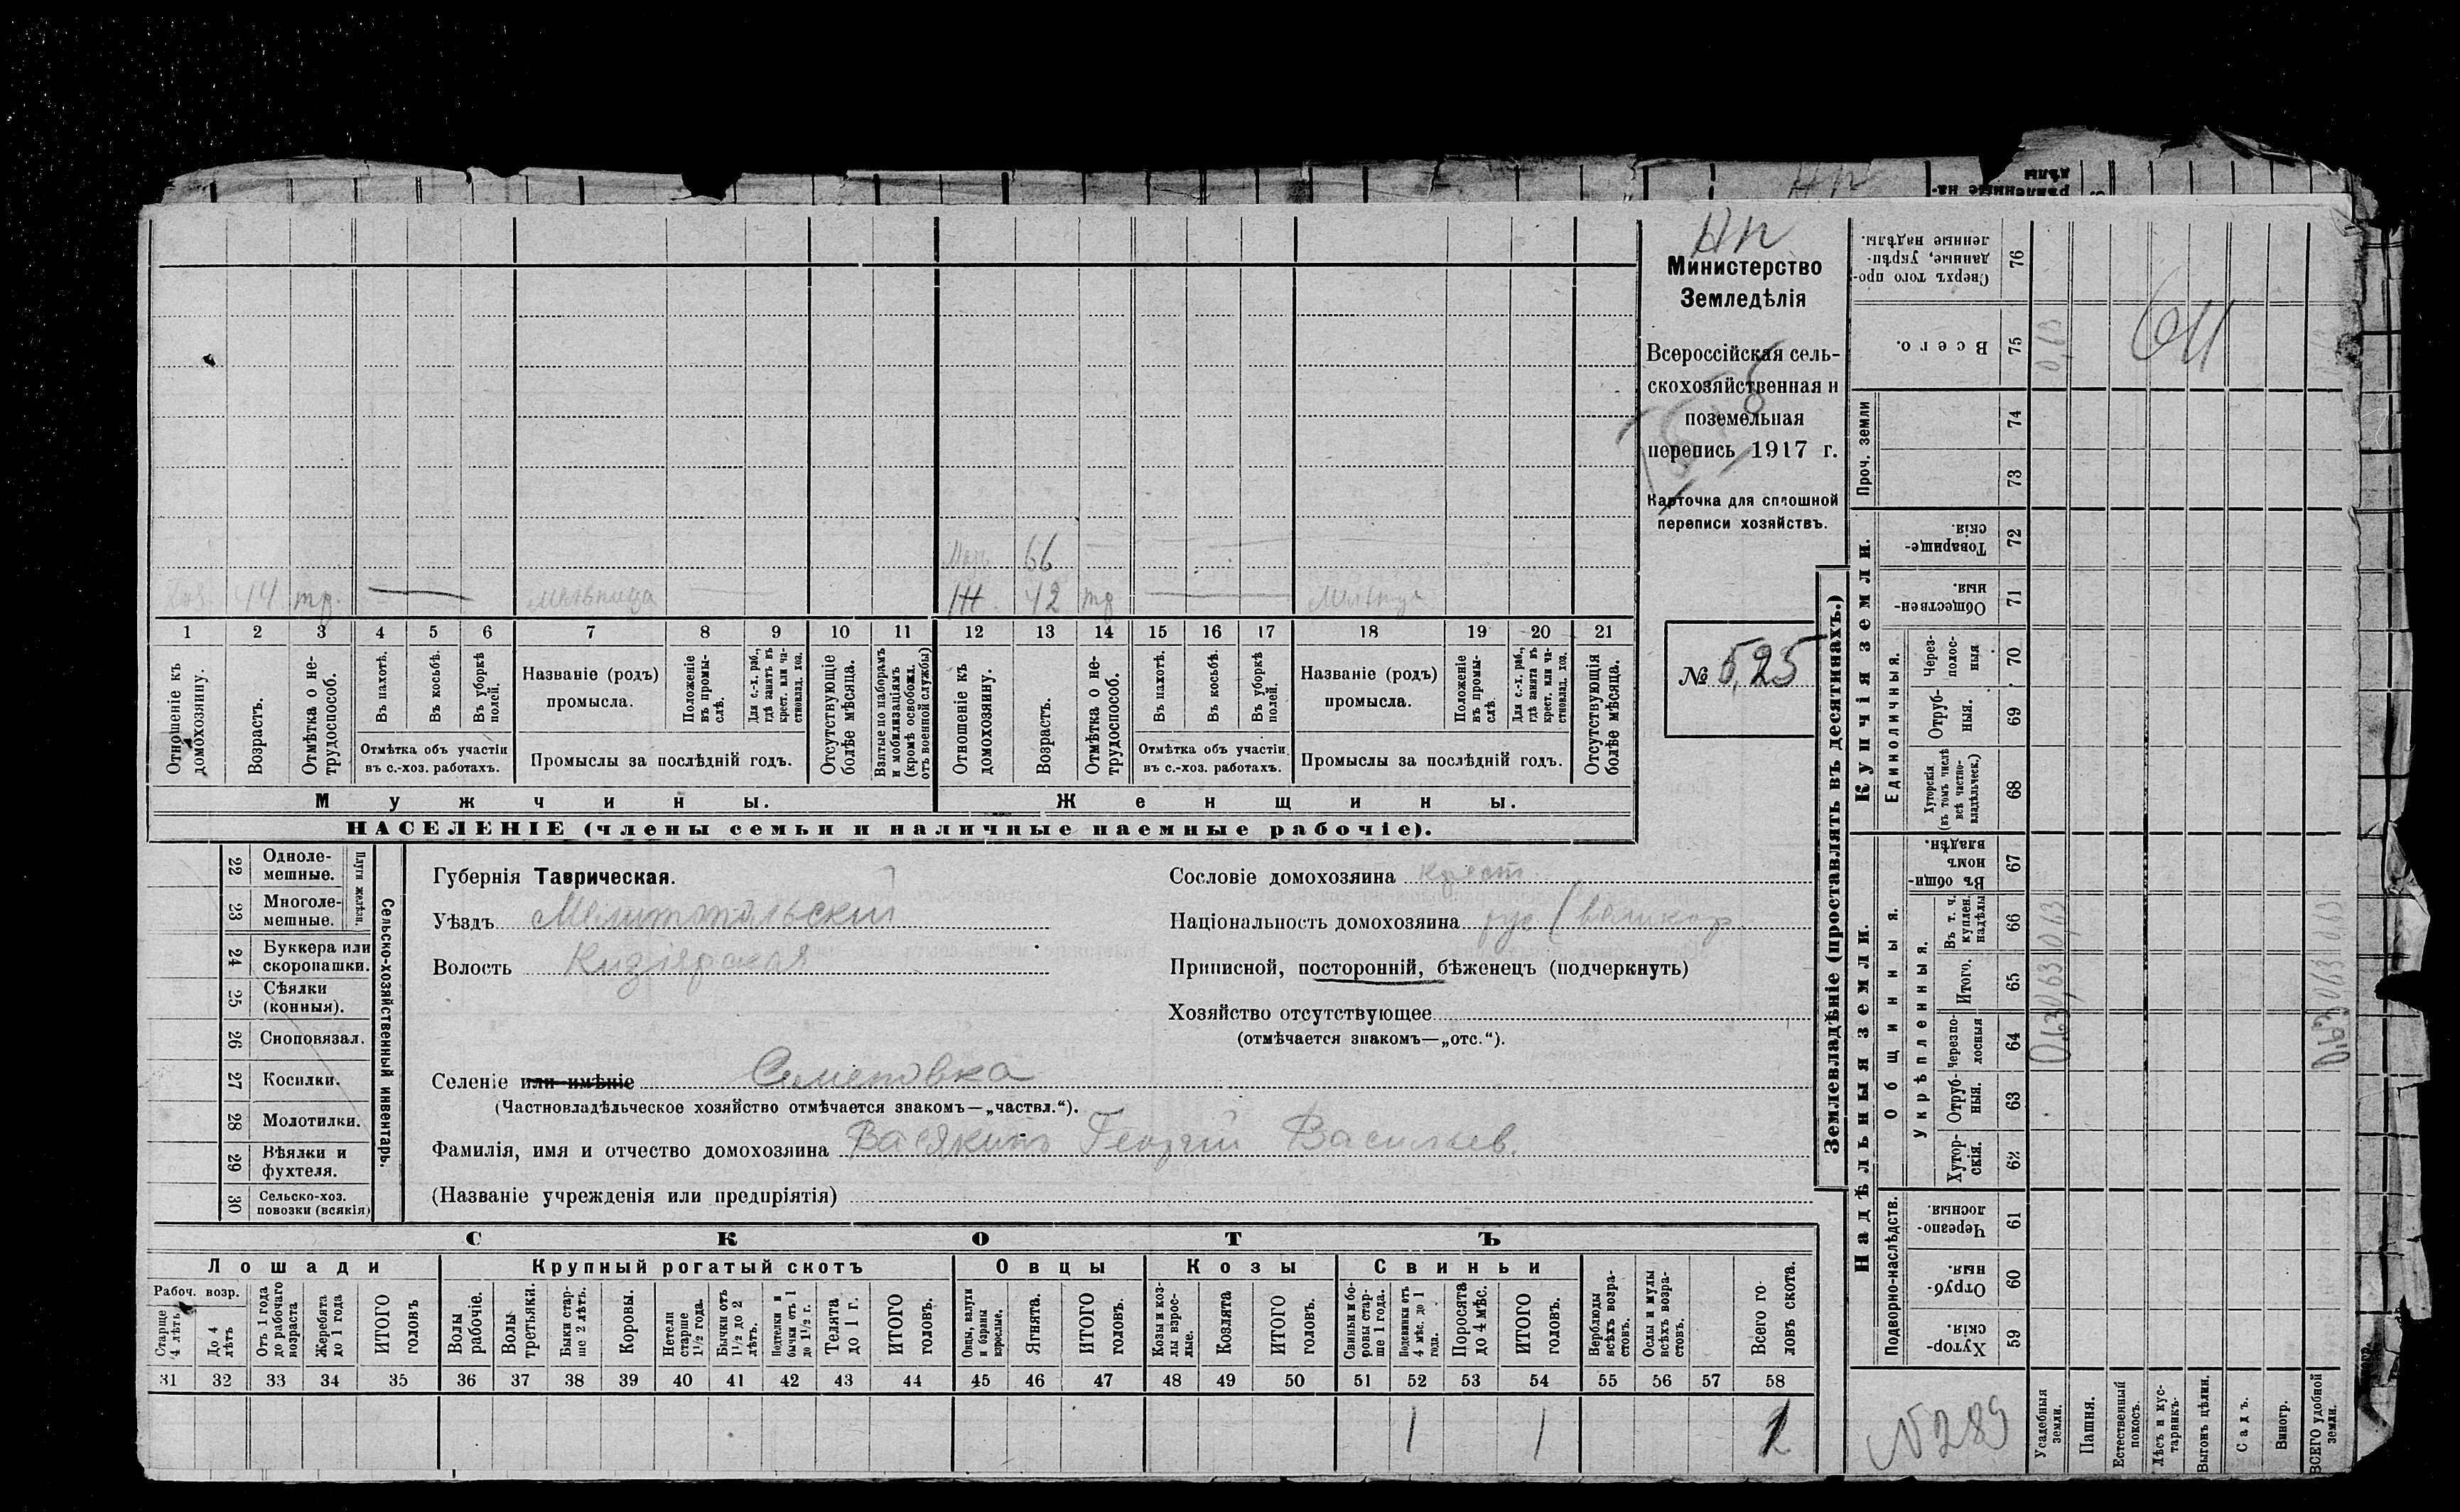 Нп
Министерство
Земледѣлія
Всероссійская сель-
скохозяйственная и
поземельная
перепись 1917 г.
Карточка для сплошной
переписи хозяйствъ.
№ 525
Мать 66
Хоз. 44 тр. — мельница
Ж. 42 тр —
1 2 3 4 5 6 7 8 9 10 11 12 13 14 15 16 17 18 19 20 21
Отношеніе къ домохозяину.
Возрастъ.
Отмѣтка о не-трудоспособ.
Въ пахотѣ.
Въ косьбѣ.
Въ уборкѣ полей.
Отмѣтка объ участіи
въ с.-хоз. работахъ.
Названіе (родъ)
промысла.
Положеніе въ промы-слѣ.
Для с.-х. раб., гдѣ занятъ въ крест. или ча-стновлад. хоз.
Промыслы за послѣдній годъ.
Отсутствующіе болѣе мѣсяца.
Взятые по наборамъ и мобилизаціямъ (кромѣ освобожд. отъ военной службы)
Отношеніе къ домохозяину.
Возрастъ.
Отмѣтка о не-трудоспособ.
Въ пахотѣ.
Въ косьбѣ.
Въ уборкѣ полей.
Отмѣтка объ участіи
въ с.-хоз. работахъ.
Названіе (родъ)
промысла.
Положеніе въ промы-слѣ.
Для с.-х. раб., гдѣ занята въ крест. или ча-стновлад. хоз.
Промыслы за послѣдній годъ.
Отсутствующія болѣе мѣсяца.
Мужчины.
Женщины.
НАСЕЛЕНІЕ (члены семьи и наличные наемные рабочіе).
22 Одноле-мешные.
23 Многоле-мешные.
Плуги желѣзн.
24 Буккера или скоропашки.
25 Сѣялки (конныя).
26 Сноповязал.
27 Косилки.
28 Молотилки.
29 Вѣялки и фухтеля.
30 Сельско-хоз. повозки (всякія)
Сельско-хозяйственный инвентарь.
Губернія Таврическая.
Уѣздъ Мелитопольскій
Волость Кизіярская
Сословіе домохозяина крест.
Національность домохозяина рус (великор.
Приписной, посторонній, бѣженецъ (подчеркнуть)
Хозяйство отсутствующее
(отмѣчается знакомъ—„отс.“).
Селеніе или имѣніе Семеновка
(Частновладѣльческое хозяйство отмѣчается знакомъ—„частвл.“).
Фамилія, имя и отчество домохозяина Васякинъ Георгій Васильев.
(Названіе учрежденія или предпріятія)
СКОТЪ
Лошади
Крупный рогатый скотъ
Овцы
Козы
Свиньи
Рабоч. возр.
Старше 4 лѣтъ
До 4 лѣтъ
Отъ 1 года до рабочаго возраста
Жеребята до 1 года
ИТОГО головъ
Волы рабочіе.
Волы третьяки.
Быки стар-ше 2 лѣтъ.
Коровы.
Нетели старше 1½ года.
Бычки отъ 1½ до 2 лѣтъ.
Подтелки и бычки отъ 1 до 1½ г.
Телята до 1 г.
ИТОГО головъ.
Овцы, валухи и бараны взрослые.
Ягнята.
ИТОГО головъ.
Козы и коз-лы взрос-лые.
Козлята
ИТОГО головъ.
Свиньи и бо-ровы стар-ше 1 года.
Подсвинки отъ 4 мѣс. до 1 года.
Поросята до 4 мѣс.
ИТОГО головъ.
Верблюды всѣхъ возра-стовъ.
Ослы и мулы всѣхъ возра-стовъ.
Всего го-ловъ скота.
31 32 33 34 35 36 37 38 39 40 41 42 43 44 45 46 47 48 49 50 51 52 53 54 55 56 57 58
1 1
Землевладѣніе (проставлять въ десятинахъ.)
Надѣльныя земли.
Купчія земли.
Проч. земли
Подворно-наслѣдств.
Общинныя.
Укрѣпленныя.
Единоличныя.
76 Сверхъ того про-данные, укрѣп-ленные надѣлы.
75 Всего.
74
73
72 Товарище-скія.
71 Обществен-ныя.
70 Через-полос-ныя
69 Отруб-ныя.
68 Хуторскія (въ томъ числѣ всѣ частно-владѣльческ.)
67 Въ общи-номъ владѣн.
66 Въ т. ч. куплен. надѣлы
65 Итого.
64 Черезпо-лосныя
63 Отруб-ныя.
62 Хутор-скія.
61 Черезпо-лосныя.
60 Отруб-ныя.
59 Хутор-скія.
N289
Усадебныя земли.
Пашня.
Естественный покосъ.
Лѣсъ и кус-тарникъ.
Выгонъ цѣлин.
Садъ.
Виногр.
ВСЕГО удобной земли.